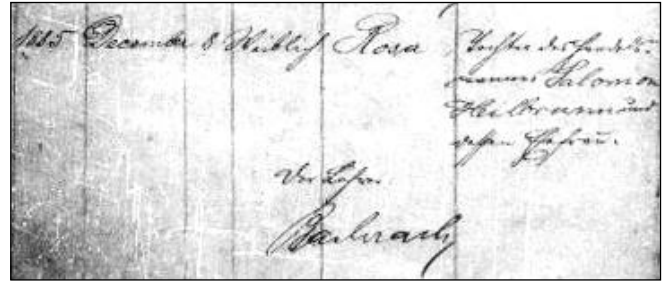 1885 December 8 Weiblich Rosa Tochter des Handels-
mannes Salomon
Heilbrunn und
dessen Ehefrau.
Der Lehrer
Bacherach